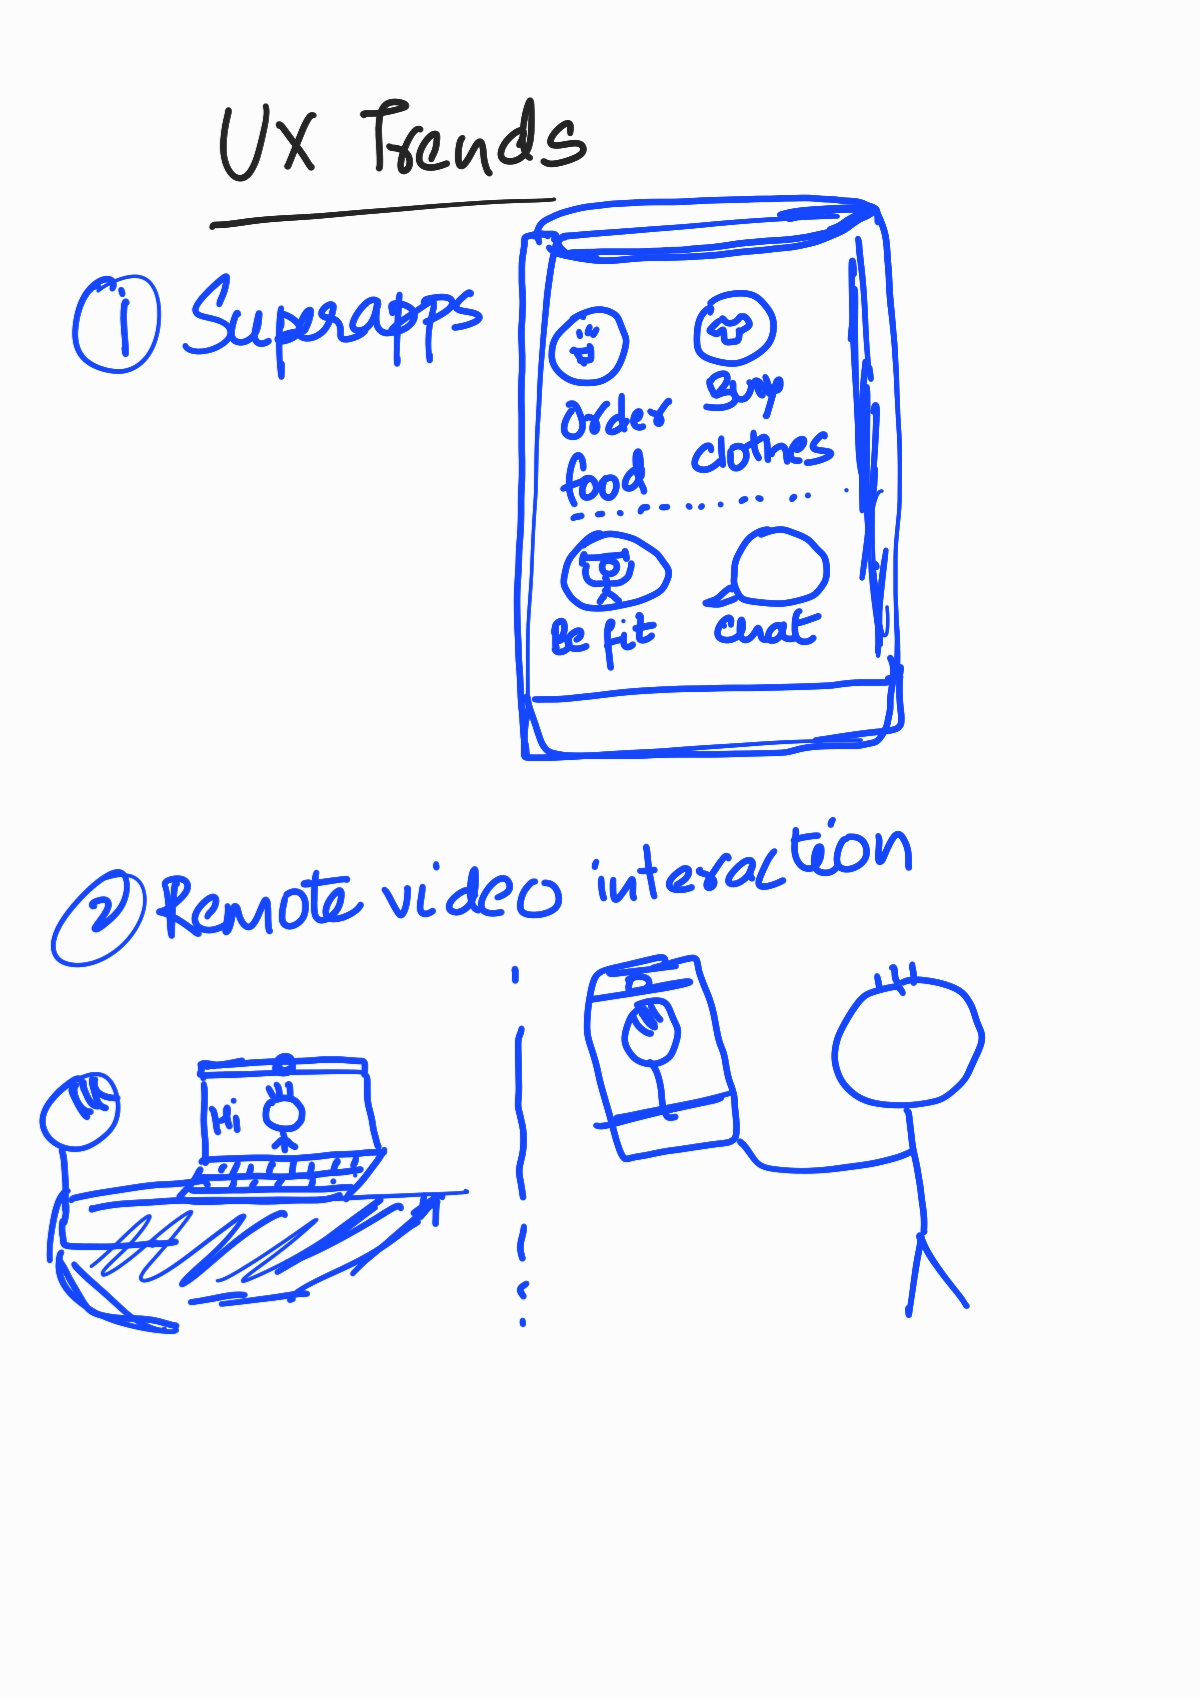 UX Trends
1 Superapps
Order food
Buy clothes
Be fit
Chat
2 Remote video interaction
Hi